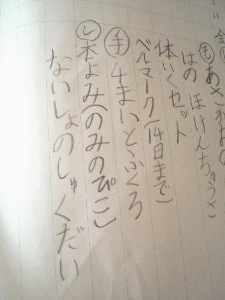 ㋲あさがおの
はの ほけんちょうさ
体いくセット
ベルマーク(14日まで)
㋢4まいとふくろ
㋛本よみ(のみのぴこ)
ないしょのしゅくだい